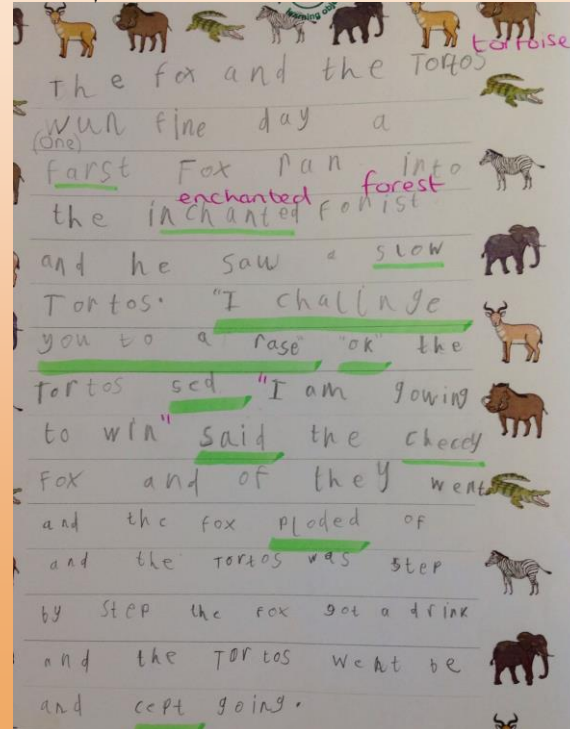 learning obj
tortoise
The fox and the Tortos
wun fine day a
(One)
farst Fox ran into
enchanted forest
the inchanted forist
and he saw a slow
Tortos. "I challinge
you to a rase" "ok" the
Tortos sed "I am gowing
to win" said the checcy
Fox and of they went
and the fox ploded of
and the Tortos was step
by step the fox got a drink
and the Tortos went be
and cept going.